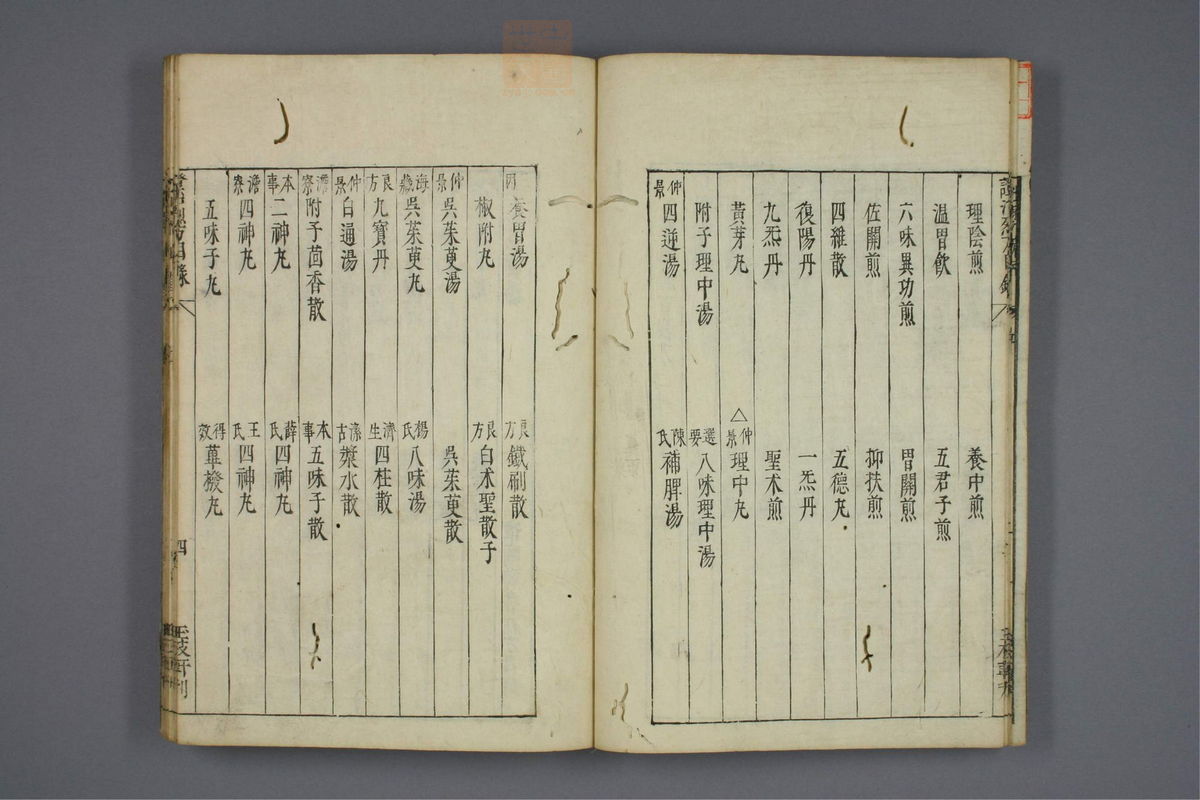 理陰煎 養中煎
溫胃飲 五君子煎
六味異功煎 胃關煎
佐關煎 抑扶煎
四維散 五德丸
復陽丹 一炁丹
九炁丹 聖术煎
黃芽丸 △仲景理中丸
附子理中湯 選要八味理中湯
仲景四逆湯 陳氏補脾湯
養胃湯 良方鐵刷散
椒附丸 良方白术聖散子
仲景吳茱萸湯 吳茱萸散
海藏吳茱萸丸 楊氏八味湯
良方九寶丹 濟生四柱散
仲景白通湯 潔古漿水散
澹寮附子茴香散 本事五味子散
本事二神丸 薛氏四神丸
澹寮四神丸 王氏四神丸
五味子丸 得效蓽撥丸
四